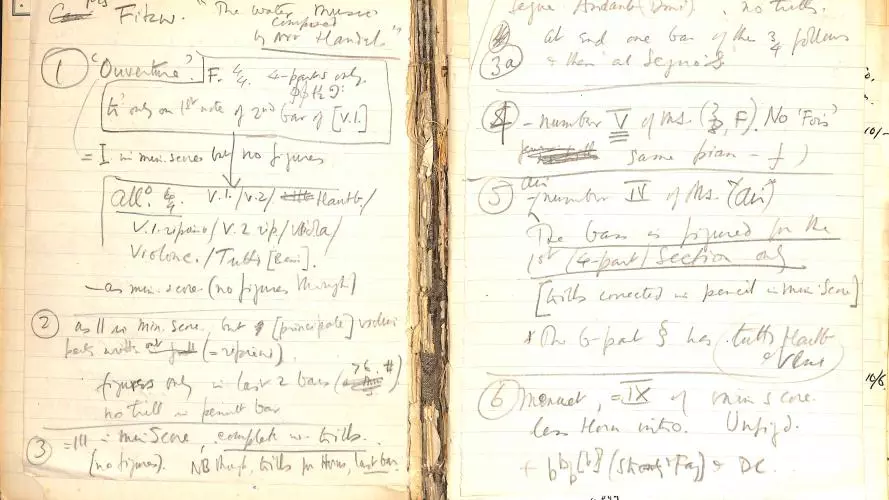 Fitzw. "The water music
composed
by Mr Handel"
① "Ouverture". F. 4/4. 4-parts only.
tr only on 1st note of 2nd bar of [V.1.]
= I in min. score but no figures
All°. 4/4. V.1./V.2/ Hautb/
V.1.ripieno/V.2 rip/Viola/
Violone./Tutti [Bassi].
— as min. score (no figures though)
② as II in Min. Score, but [principale] violin
parts (= ripieno),
figures only in last 2 bars
no trill in penult bar
③ = III in min Score, complete w. trills.
(no figures). NB though, trills for Horns, last bar.
Segue Andante (Dmi), no trills.
at end one bar of the 3/4 follows
③a & then al Segno
④ - number V of Ms. (3, F). No 'Fois'
same pian - f)
⑤ air
- number IV of Ms. "air"
The bass is figured for the
1st (4-part) Section only
[trills corrected in pencil in min Score]
* The 6-part § has tutti Hautb
& Vlns
⑥ Menuet, = IX of min score.
less Horn intro. Unfigd.
DC.
10/-
10/6